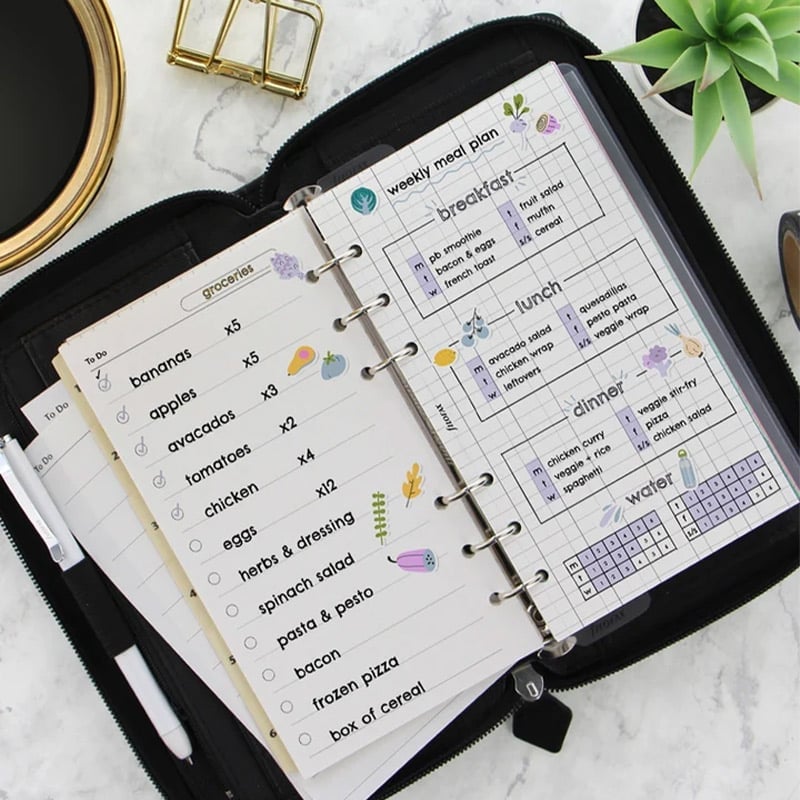 groceries
To Do
bananas x5
apples x5
avacados x3
tomatoes x2
chicken x4
eggs x12
herbs & dressing
spinach salad
pasta & pesto
bacon
frozen pizza
box of cereal
To Do
To Do
2
3
4
5
6
weekly meal plan
breakfast
m pb smoothie
t bacon & eggs
w french toast
t fruit salad
f muffin
s/s cereal
lunch
m avacado salad
t chicken wrap
w leftovers
t quesadillas
f pesto pasta
s/s veggie wrap
dinner
m chicken curry
t veggie + rice
w spaghetti
t veggie stir-fry
f pizza
s/s chicken salad
water
m 1 2 3 4
t 1 2 3 4
w 1 2 3 4
t 1 2 3 4
f 1 2 3 4
s/s 1 2 3 4
filofax
filofax